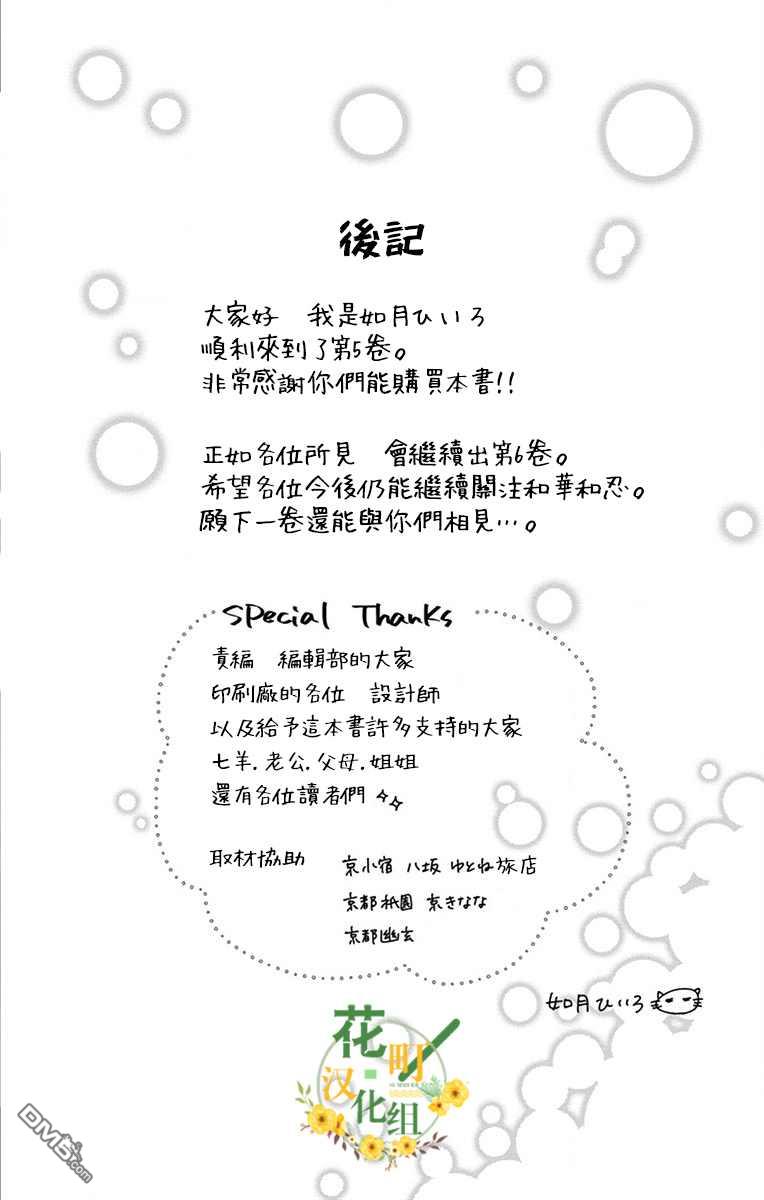 後記
大家好　我是如月ひいろ
順利來到了第5卷。
非常感謝你們能購買本書!!
正如各位所見　會繼續出第6卷。
希望各位今後仍能繼續關注和華和忍。
願下一卷還能與你們相見…。
Special Thanks
責編　編輯部的大家
印刷廠的各位　設計師
以及給予這本書許多支持的大家
七羊.老公.父母.姐姐
還有各位讀者們
取材協助　京小宿 八坂 ゆとね旅店
京都祇園 京きなな
京都幽玄
如月ひいろ
花町
汉化组
DM5.com